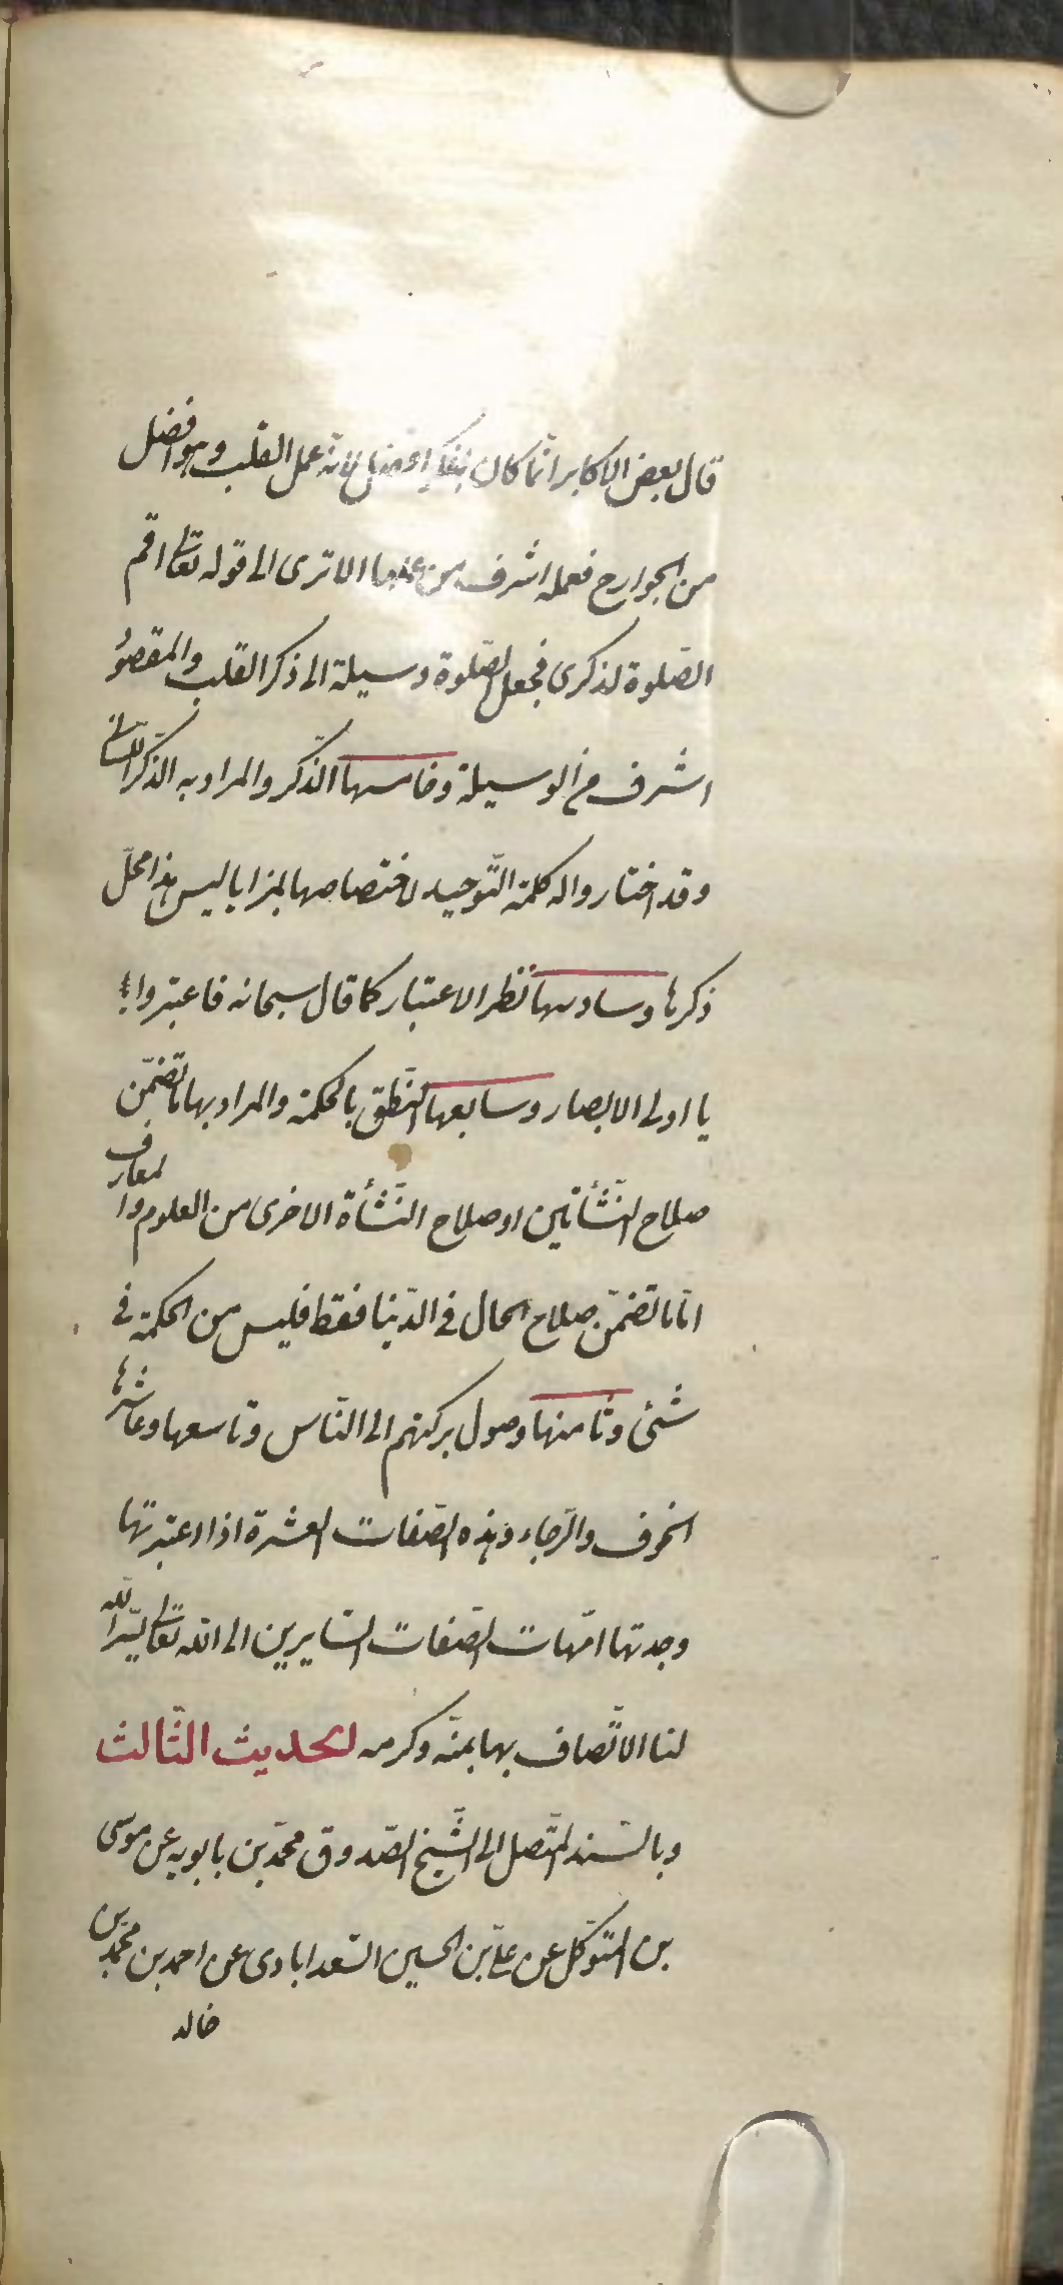 قال بعض الاكابر انّما كان التفكر افضل لانه عمل القلب وهو افضل
من الجوارح فعمله اشرف من عملها الا ترى الى قوله تعالى اقم
الصّلوة لذكرى فجعل الصّلوة وسيلة الى ذكر القلب والمقصود
اشرف من الوسيلة وخامسها الذّكر والمراد به الذّكر اللسانى
وقد اختاروا له كلمة التّوحيد لاختصاصها بمزايا ليس هذا محلّ
ذكرها وسادسها نظر الاعتبار كما قال سبحانه فاعتبروا
يا اولى الابصار وسابعها النّطق بالحكمة والمراد بها ما تضمّن
صلاح النّشأتين او صلاح النّشأة الاخرى من العلوم والمعارف
امّا ما تضمّن صلاح الحال فى الدّنيا فقط فليس من الحكمة فى
شئ وثامنها وصول بركتهم الى النّاس وتاسعها وعاشرها
الخوف والرّجاء وهذه الصّفات العشرة اذا اعتبرتها
وجدتها امّهات الصّفات السّايرين الى الله تعالى يسّر الله
لنا الاتّصاف بها بمنّه وكرمه الحديث الثّالث
وبالسّند المتّصل الى الشّيخ الصّدوق محمّد بن بابويه عن موسى
بن المتوكّل عن علىّ بن الحسين السّعدابادى عن احمد بن محمّد بن
خالد